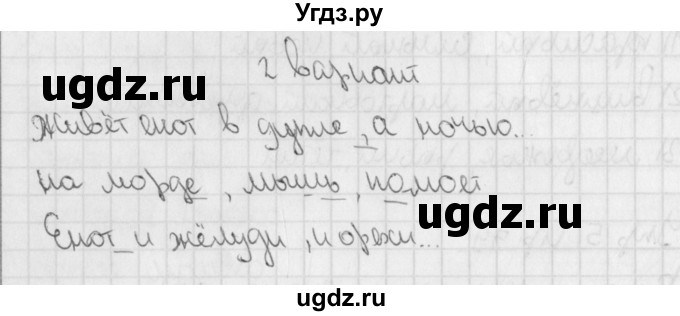 Угдз.ру
ugdz.ru
2 вариант
ugdz.ru
Живёт енот в дупле, а ночью...
на морде, мышь, помоет
ugdz.ru
Енот и жёлуди, и орехи...
ugdz.ru